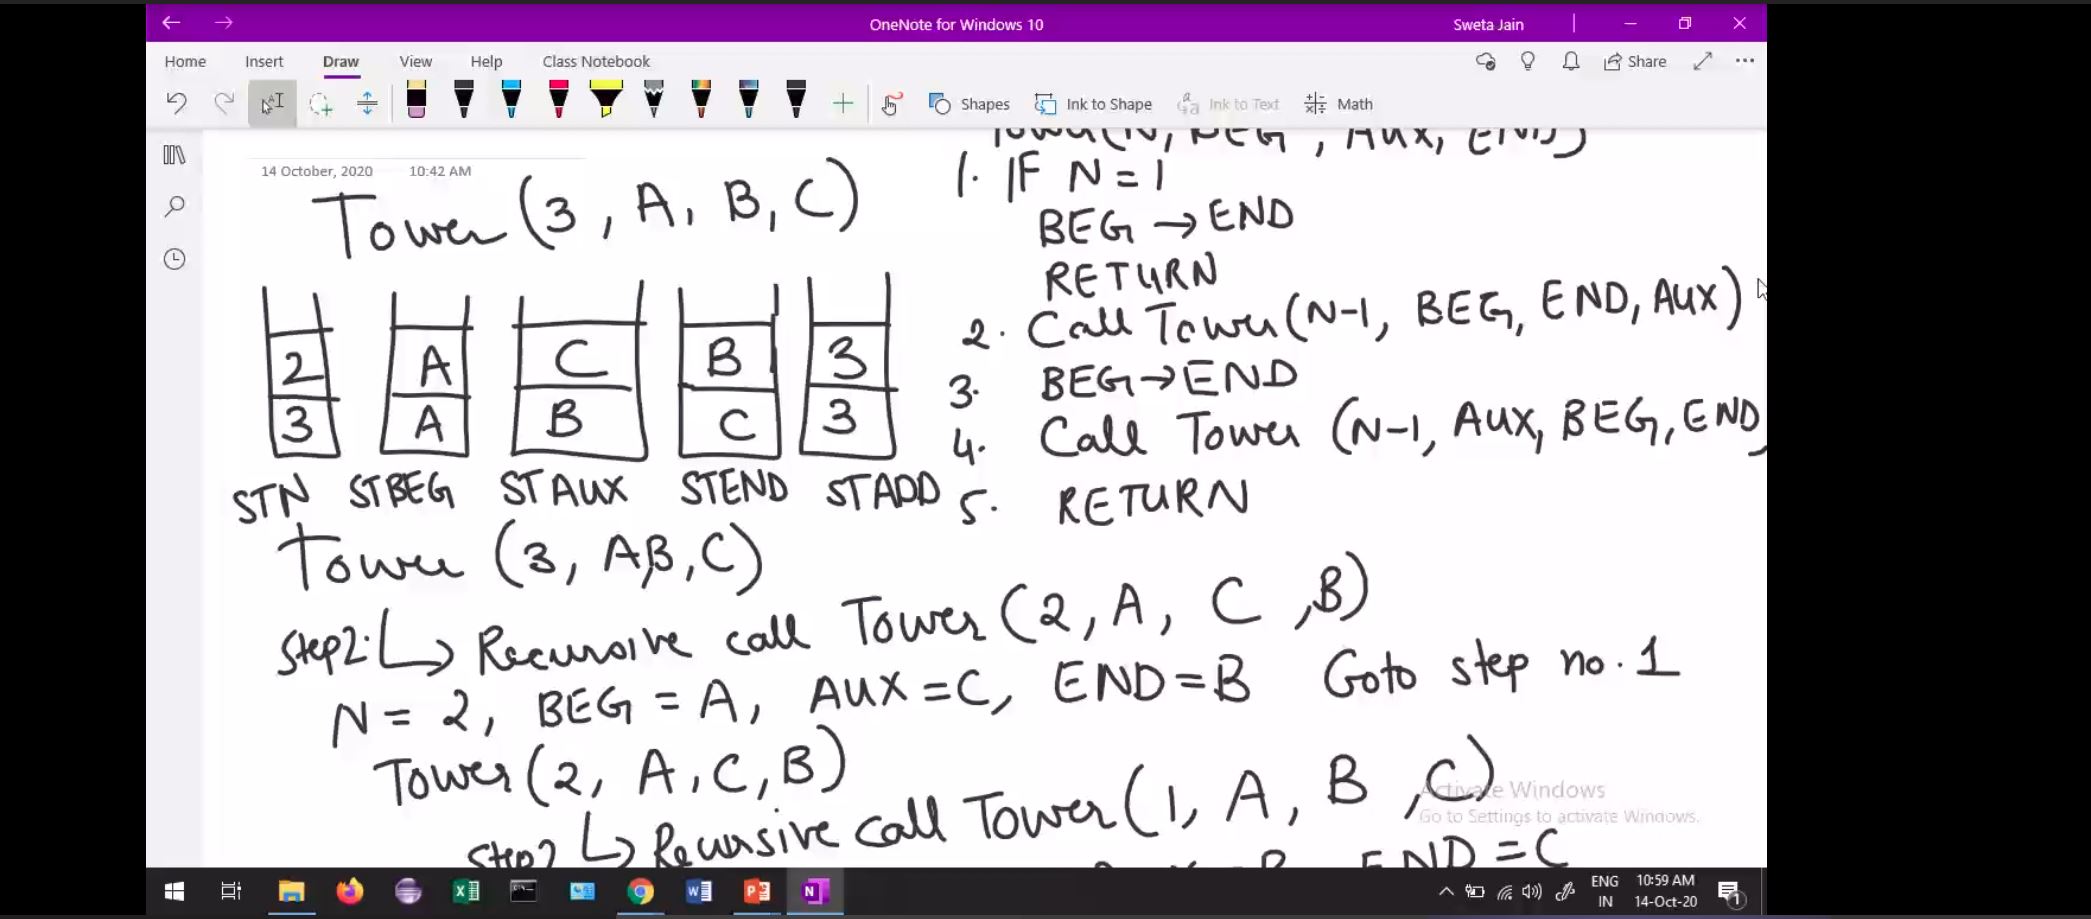 OneNote for Windows 10
Sweta Jain
Home Insert Draw View Help Class Notebook
Share
Shapes Ink to Shape Ink to Text Math
14 October, 2020 10:42 AM
Tower (3, A, B, C)
2 A C B 3
3 A B C 3
STN STBEG STAUX STEND STADD
Tower(N, BEG, AUX, END)
1. IF N = 1
BEG → END
RETURN
2. Call Tower(N-1, BEG, END, AUX)
3. BEG → END
4. Call Tower (N-1, AUX, BEG, END,
5. RETURN
Tower (3, A,B,C)
Step2. ↳ Recursive call Tower (2, A, C, B)
N = 2, BEG = A, AUX = C, END = B Goto step no. 1
Tower (2, A, C, B)
Step2 ↳ Recursive call Tower (1, A, B, C)
END = C
Activate Windows
Go to Settings to activate Windows.
ENG
IN
10:59 AM
14-Oct-20
1